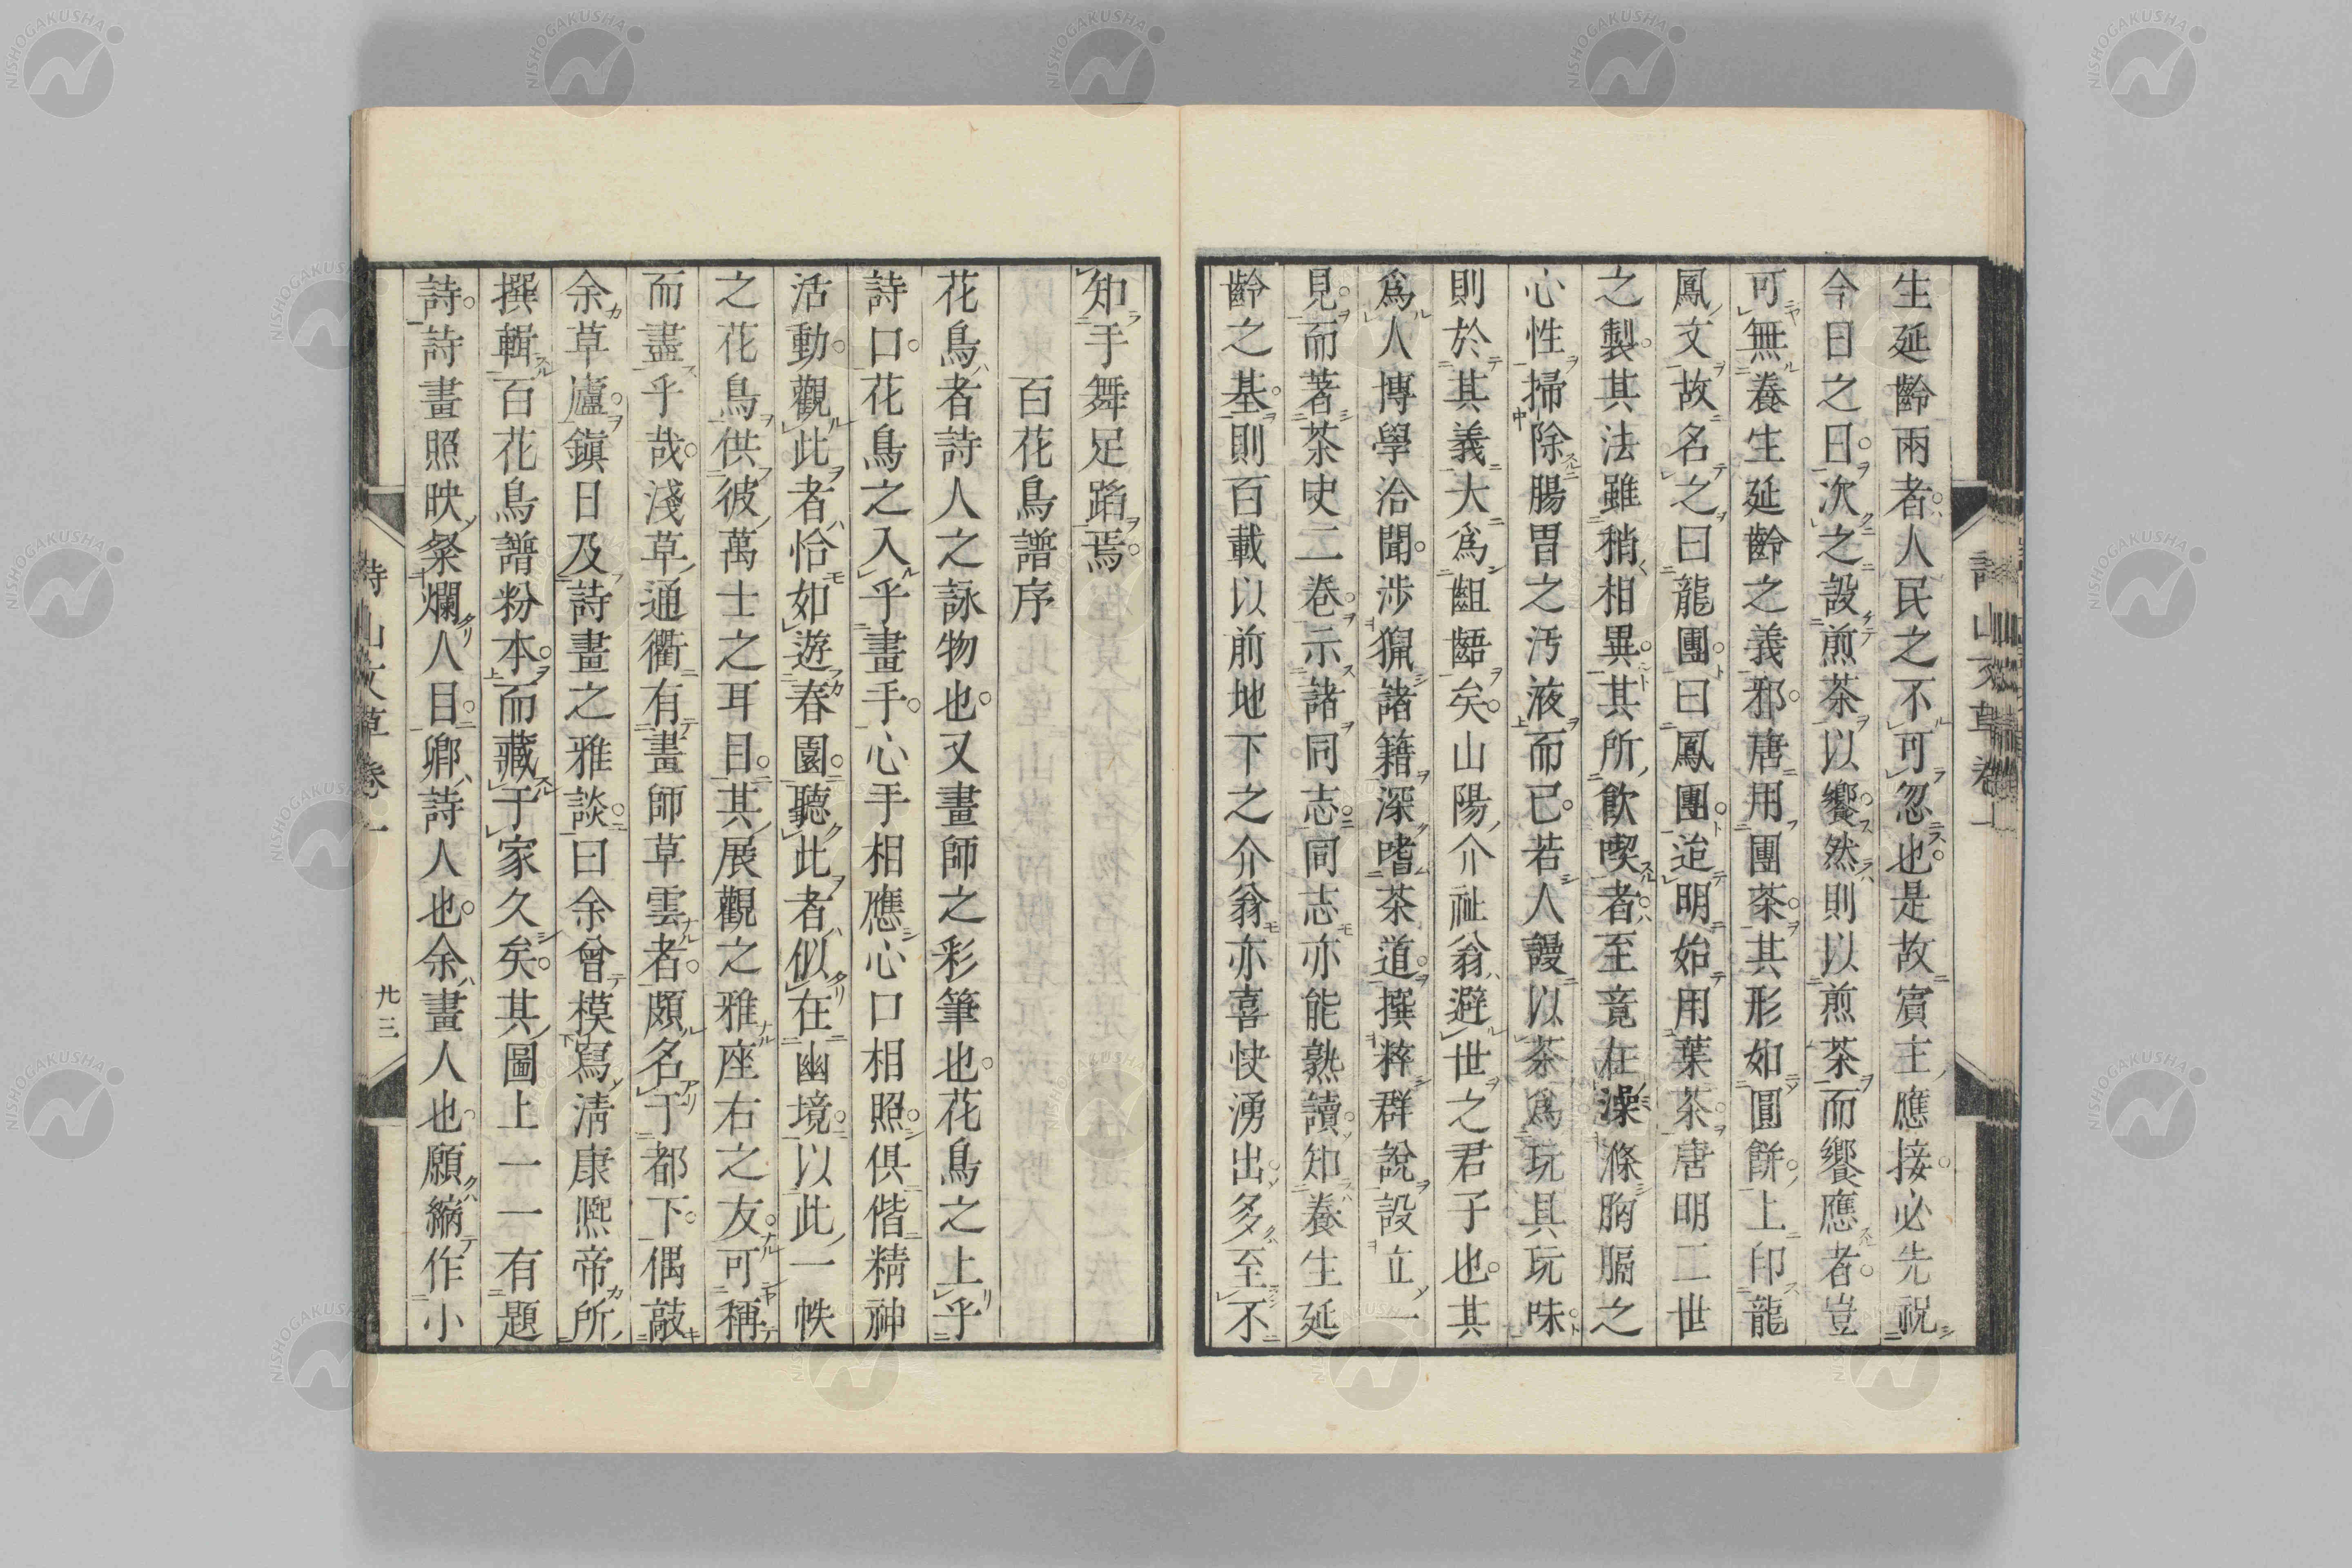 生延齡兩者人民之不可忽也是故賓主應接必先祝
今日之日次之設煎茶以饗然則以煎茶而饗應者豈
可無養生延齡之義邪唐用團茶其形如圓餠上印龍
鳳文故名之曰龍團曰鳳團迨明始用葉茶唐明二世
之製其法雖稍相異其所飮喫者至竟在澡滌胸膈之
心性掃除腸胃之汚液而已若人謾以茶爲玩具玩味
則於其義大爲齟齬矣山陽介祉翁避世之君子也其
爲人博學洽聞涉獵諸籍深嗜茶道撰粹群說設立一
見而著茶史二卷示諸同志同志亦能熟讀知養生延
齡之基則百載以前地下之介翁亦喜快湧出多至不
知手舞足蹈焉
百花鳥譜序
花鳥者詩人之詠物也又畫師之彩筆也花鳥之上乎
詩口花鳥之入乎畫手心手相應心口相照俱偕精神
活動觀此者恰如遊春園聽此者似在幽境以此一帙
之花鳥供彼萬士之耳目其展觀之雅座右之友可稱
而盡乎哉淺草通衢有畫師草雲者頗名于都下偶敲
余草廬鎭日及詩畫之雅談曰余曾模寫淸康熙帝所
撰輯百花鳥譜粉本而藏于家久矣其圖上一一有題
詩詩畫照映粲爛人目卿詩人也余畫人也願縮作小
詩山文草卷一
廿三
NISHOGAKUSHA